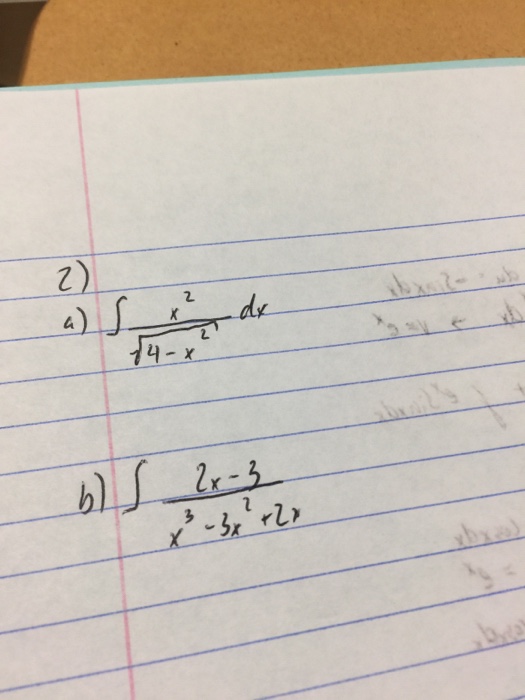 2)
a) ∫ x² / √(4 - x²) dx
b) ∫ (2x - 3) / (x³ - 3x² + 2x)